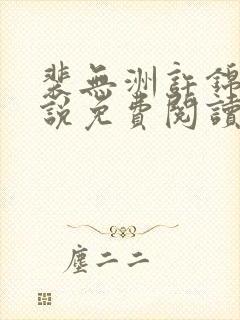 裴無洲許錦
說免費閱讀
塵二二